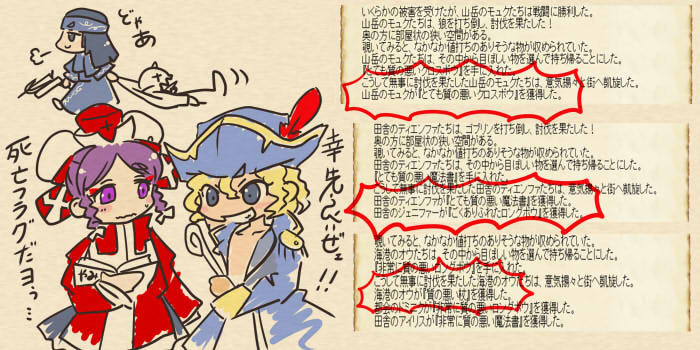 どゃあ
幸先らいいぜェ!!
死亡フラグだヨぅ…
やみ
いくらかの被害を受けたが、山岳のモュクたちは戦闘に勝利した。
山岳のモュクたちは、狼を打ち倒し、討伐を果たした！
奥の方に部屋状の狭い空間がある。
覗いてみると、なかなか値打ちのありそうな物が収められていた。
山岳のモュクたちは、その中から目ぼしい物を選んで持ち帰ることにした。
『とても質の悪いクロスボウ』を手に入れた。
こうして無事に討伐を果たした山岳のモュクたちは、意気揚々と街へ凱旋した。
山岳のモュクが『とても質の悪いクロスボウ』を獲得した。
田舎のティエンファたちは、ゴブリンを打ち倒し、討伐を果たした！
奥の方に部屋状の狭い空間がある。
覗いてみると、なかなか値打ちのありそうな物が収められていた。
田舎のティエンファたちは、その中から目ぼしい物を選んで持ち帰ることにした。
『とても質の悪い魔法書』を手に入れた。
こうして無事に討伐を果たした田舎のティエンファたちは、意気揚々と街へ凱旋した。
田舎のティエンファが『とても質の悪い魔法書』を獲得した。
田舎のジェニファーが『ごくありふれたロングボウ』を獲得した。
覗いてみると、なかなか値打ちのありそうな物が収められていた。
海港のオウたちは、その中から目ぼしい物を選んで持ち帰ることにした。
『非常に質の悪いロングボウ』を手に入れた。
こうして無事に討伐を果たした海港のオウたちは、意気揚々と街へ凱旋した。
海港のオウが『質の悪い杖』を獲得した。
『非常に質の悪いロングボウ』を獲得した。
田舎のアイリスが『非常に質の悪い魔法書』を獲得した。